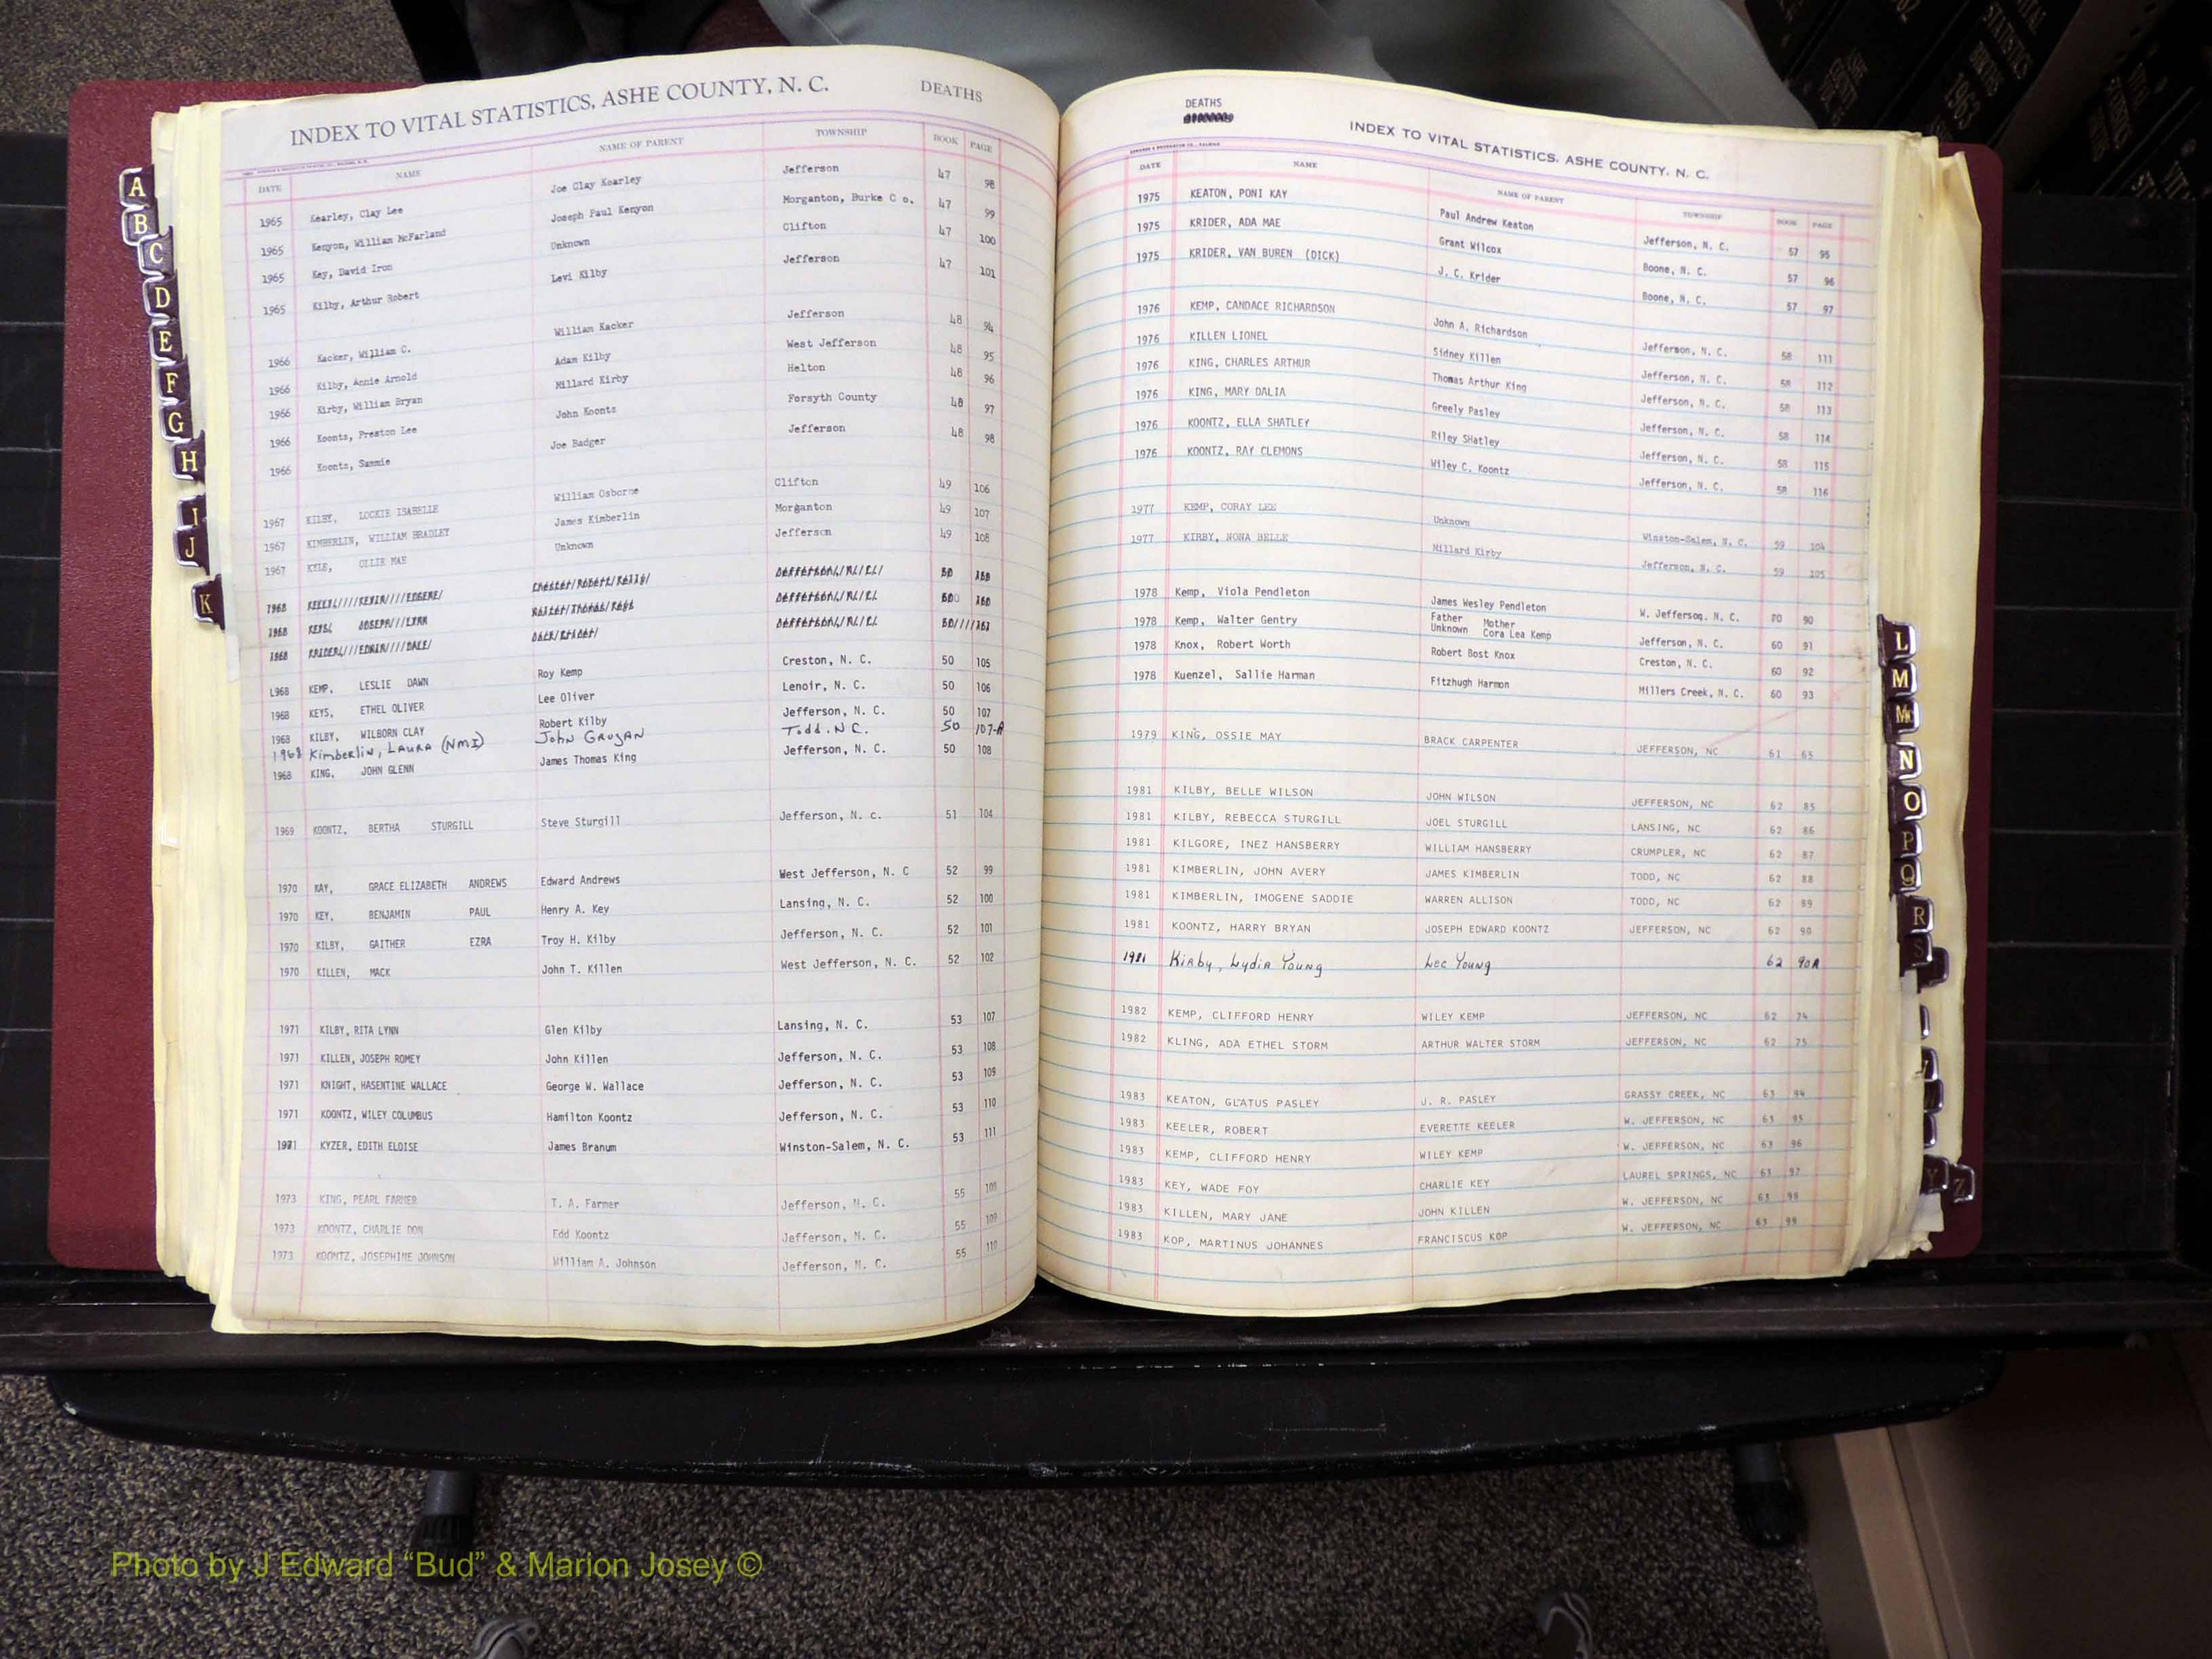 INDEX TO VITAL STATISTICS, ASHE COUNTY, N. C. DEATHS
DATE NAME NAME OF PARENT TOWNSHIP BOOK PAGE
1965 Kearley, Clay Lee Joe Clay Kearley Jefferson 47 98
1965 Kenyon, William McFarland Joseph Paul Kenyon Morganton, Burke C o. 47 99
1965 Key, David Iron Unknown Clifton 47 100
1965 Kilby, Arthur Robert Levi Kilby Jefferson 47 101
1966 Kacker, William C. William Kacker Jefferson 48 94
1966 Kilby, Annie Arnold Adam Kilby West Jefferson 48 95
1966 Kirby, William Bryan Millard Kirby Helton 48 96
1966 Koontz, Preston Lee John Koontz Forsyth County 48 97
1966 Koontz, Sammie Joe Badger Jefferson 48 98
1967 KILBY, LOCKIE ISABELLE William Osborne Clifton 49 106
1967 KIMBERLIN, WILLIAM BRADLEY James Kimberlin Morganton 49 107
1967 KYLE, OLLIE MAE Unknown Jefferson 49 108
1968
1968
1968
L968 KEMP, LESLIE DAWN Roy Kemp Creston, N. C. 50 105
1968 KEYS, ETHEL OLIVER Lee Oliver Lenoir, N. C. 50 106
1968 KILBY, WILBORN CLAY Robert Kilby Jefferson, N. C. 50 107
1968 Kimberlin, LAURA (NMI) John GROGAN Todd, N.C. 50 107-A
1968 KING, JOHN GLENN James Thomas King Jefferson, N. C. 50 108
1969 KOONTZ, BERTHA STURGILL Steve Sturgill Jefferson, N. c. 51 104
1970 KAY, GRACE ELIZABETH ANDREWS Edward Andrews West Jefferson, N. C 52 99
1970 KEY, BENJAMIN PAUL Henry A. Key Lansing, N. C. 52 100
1970 KILBY, GAITHER EZRA Troy H. Kilby Jefferson, N. C. 52 101
1970 KILLEN, MACK John T. Killen West Jefferson, N. C. 52 102
1971 KILBY, RITA LYNN Glen Kilby Lansing, N. C. 53 107
1971 KILLEN, JOSEPH ROMEY John Killen Jefferson, N. C. 53 108
1971 KNIGHT, HASENTINE WALLACE George W. Wallace Jefferson, N. C. 53 109
1971 KOONTZ, WILEY COLUMBUS Hamilton Koontz Jefferson, N. C. 53 110
1971 KYZER, EDITH ELOISE James Branum Winston-Salem, N. C. 53 111
1973 KING, PEARL FARMER T. A. Farmer Jefferson, N. C. 55 108
1973 KOONTZ, CHARLIE DON Edd Koontz Jefferson, N. C. 55 109
1973 KOONTZ, JOSEPHINE JOHNSON William A. Johnson Jefferson, N. C. 55 110
DEATHS
INDEX TO VITAL STATISTICS, ASHE COUNTY, N. C.
DATE NAME NAME OF PARENT TOWNSHIP BOOK PAGE
1975 KEATON, PONI KAY Paul Andrew Keaton Jefferson, N. C. 57 95
1975 KRIDER, ADA MAE Grant Wilcox Boone, N. C. 57 96
1975 KRIDER, VAN BUREN (DICK) J. C. Krider Boone, N. C. 57 97
1976 KEMP, CANDACE RICHARDSON John A. Richardson Jefferson, N. C. 58 111
1976 KILLEN LIONEL Sidney Killen Jefferson, N. C. 58 112
1976 KING, CHARLES ARTHUR Thomas Arthur King Jefferson, N. C. 58 113
1976 KING, MARY DALIA Greely Pasley Jefferson, N. C. 58 114
1976 KOONTZ, ELLA SHATLEY Riley SHatley Jefferson, N. C. 58 115
1976 KOONTZ, RAY CLEMONS Wiley C. Koontz Jefferson, N. C. 58 116
1977 KEMP, CORAY LEE Unknown Winston-Salem, N. C. 59 104
1977 KIRBY, NONA BELLE Millard Kirby Jefferson, N. C. 59 105
1978 Kemp, Viola Pendleton James Wesley Pendleton W. Jefferson. N. C. 90
1978 Kemp, Walter Gentry Father Unknown Mother Cora Lea Kemp Jefferson, N. C. 60 91
1978 Knox, Robert Worth Robert Bost Knox Creston, N. C. 60 92
1978 Kuenzel, Sallie Harman Fitzhugh Harmon Millers Creek, N. C. 60 93
1979 KING, OSSIE MAY BRACK CARPENTER JEFFERSON, NC 61 65
1981 KILBY, BELLE WILSON JOHN WILSON JEFFERSON, NC 62 85
1981 KILBY, REBECCA STURGILL JOEL STURGILL LANSING, NC 62 86
1981 KILGORE, INEZ HANSBERRY WILLIAM HANSBERRY CRUMPLER, NC 62 87
1981 KIMBERLIN, JOHN AVERY JAMES KIMBERLIN TODD, NC 62 88
1981 KIMBERLIN, IMOGENE SADDIE WARREN ALLISON TODD, NC 62 89
1981 KOONTZ, HARRY BRYAN JOSEPH EDWARD KOONTZ JEFFERSON, NC 62 90
1981 Kirby, Lydia Young Lee Young 62 90A
1982 KEMP, CLIFFORD HENRY WILEY KEMP JEFFERSON, NC 62 74
1982 KLING, ADA ETHEL STORM ARTHUR WALTER STORM JEFFERSON, NC 62 75
1983 KEATON, GLATUS PASLEY J. R. PASLEY GRASSY CREEK, NC 63 94
1983 KEELER, ROBERT EVERETTE KEELER W. JEFFERSON, NC 63 95
1983 KEMP, CLIFFORD HENRY WILEY KEMP W. JEFFERSON, NC 63 96
1983 KEY, WADE FOY CHARLIE KEY LAUREL SPRINGS, NC 63 97
1983 KILLEN, MARY JANE JOHN KILLEN W. JEFFERSON, NC 63 98
1983 KOP, MARTINUS JOHANNES FRANCISCUS KOP W. JEFFERSON, NC 63 99
A
B
C
D
E
F
G
H
I
J
K
L
M
Mc
N
O
P
Q
R
S
Y
Z
Photo by J Edward “Bud” & Marion Josey ©